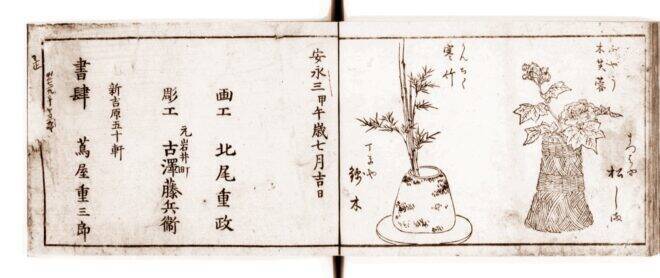 木芙蓉
松しま
かんちく
寒竹
安永三甲午歳七月吉日
画工 北尾重政
元岩井町
彫工 古澤藤兵衛
新吉原五十軒
書肆 蔦屋重三郎